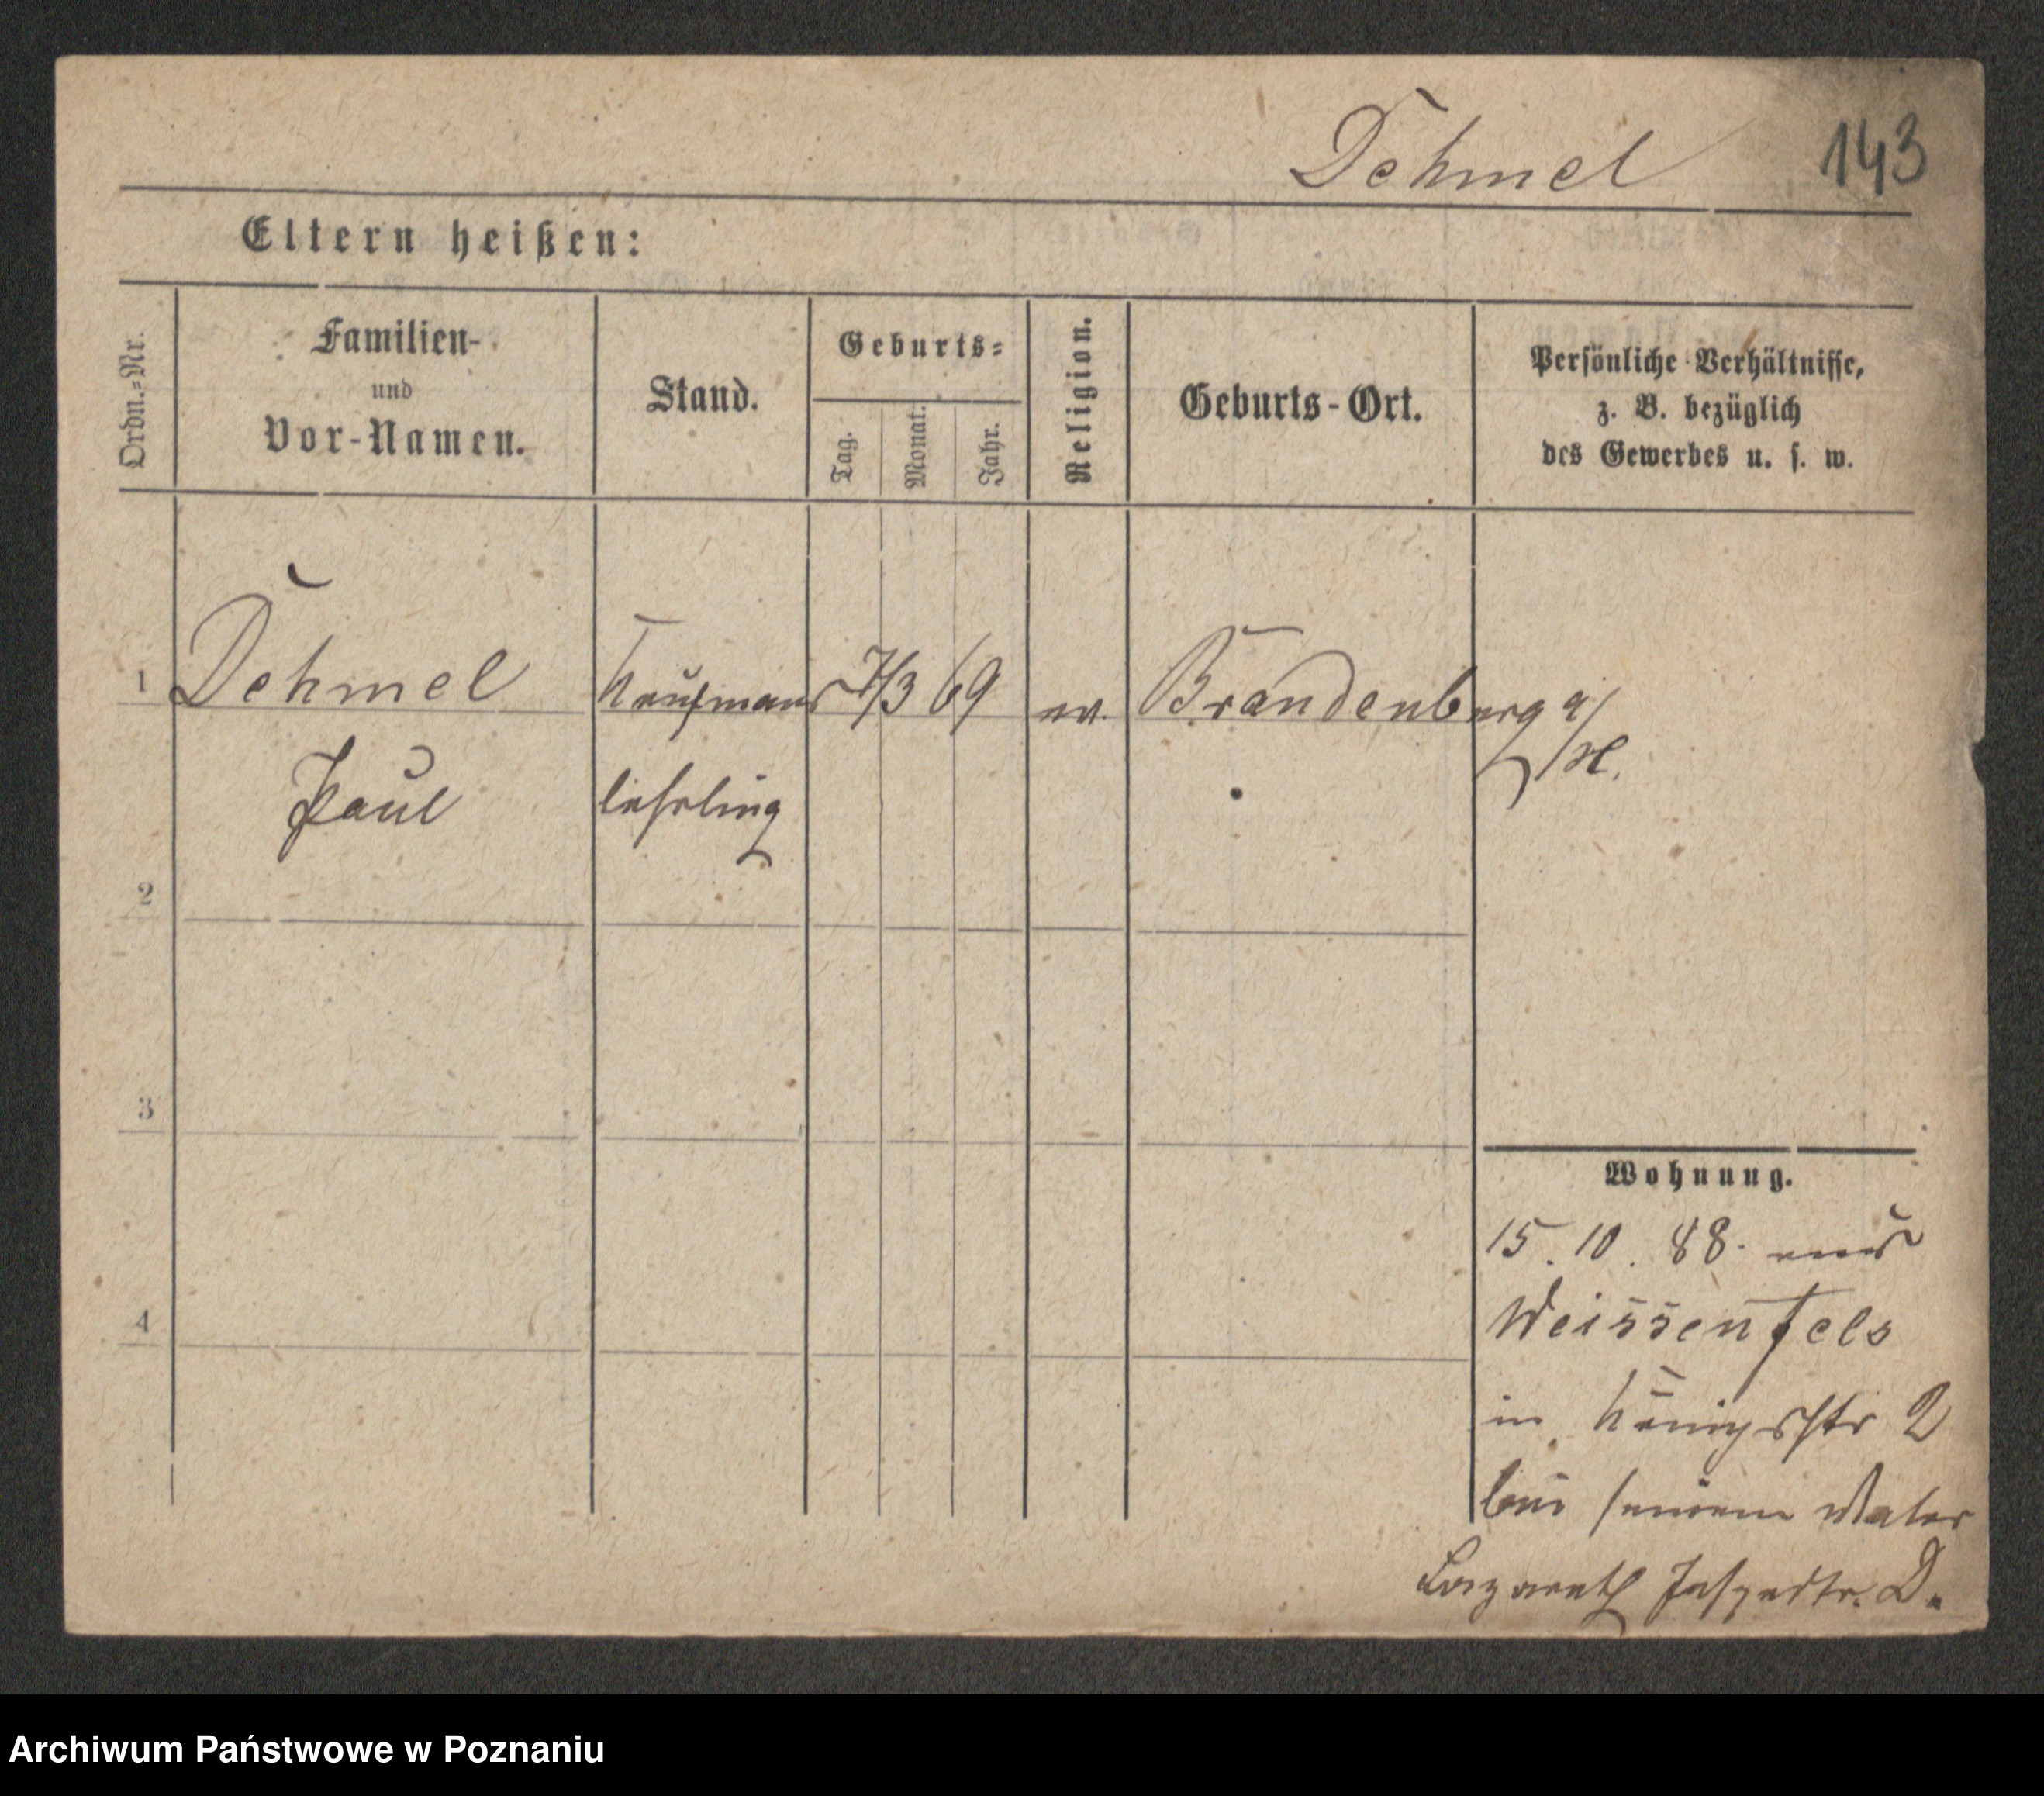 Dehmel 143
Eltern heißen:
Ordn.=Nr.
Familien-
und
Vor-Namen.
Stand.
Geburts=
Tag.
Monat.
Jahr.
Religion.
Geburts-Ort.
Persönliche Verhältnisse,
z. B. bezüglich
des Gewerbes u. s. w.
1 Dehmel Kaufmanns 7/3 69 ev. Brandenburg a/H.
Paul lehrling
2
3
4
Wohnung.
15. 10. 88. aus
Weissenfels
in Königsstr 2
bei seinem Vater
Lazareth Inspektr. D.
Archiwum Państwowe w Poznaniu